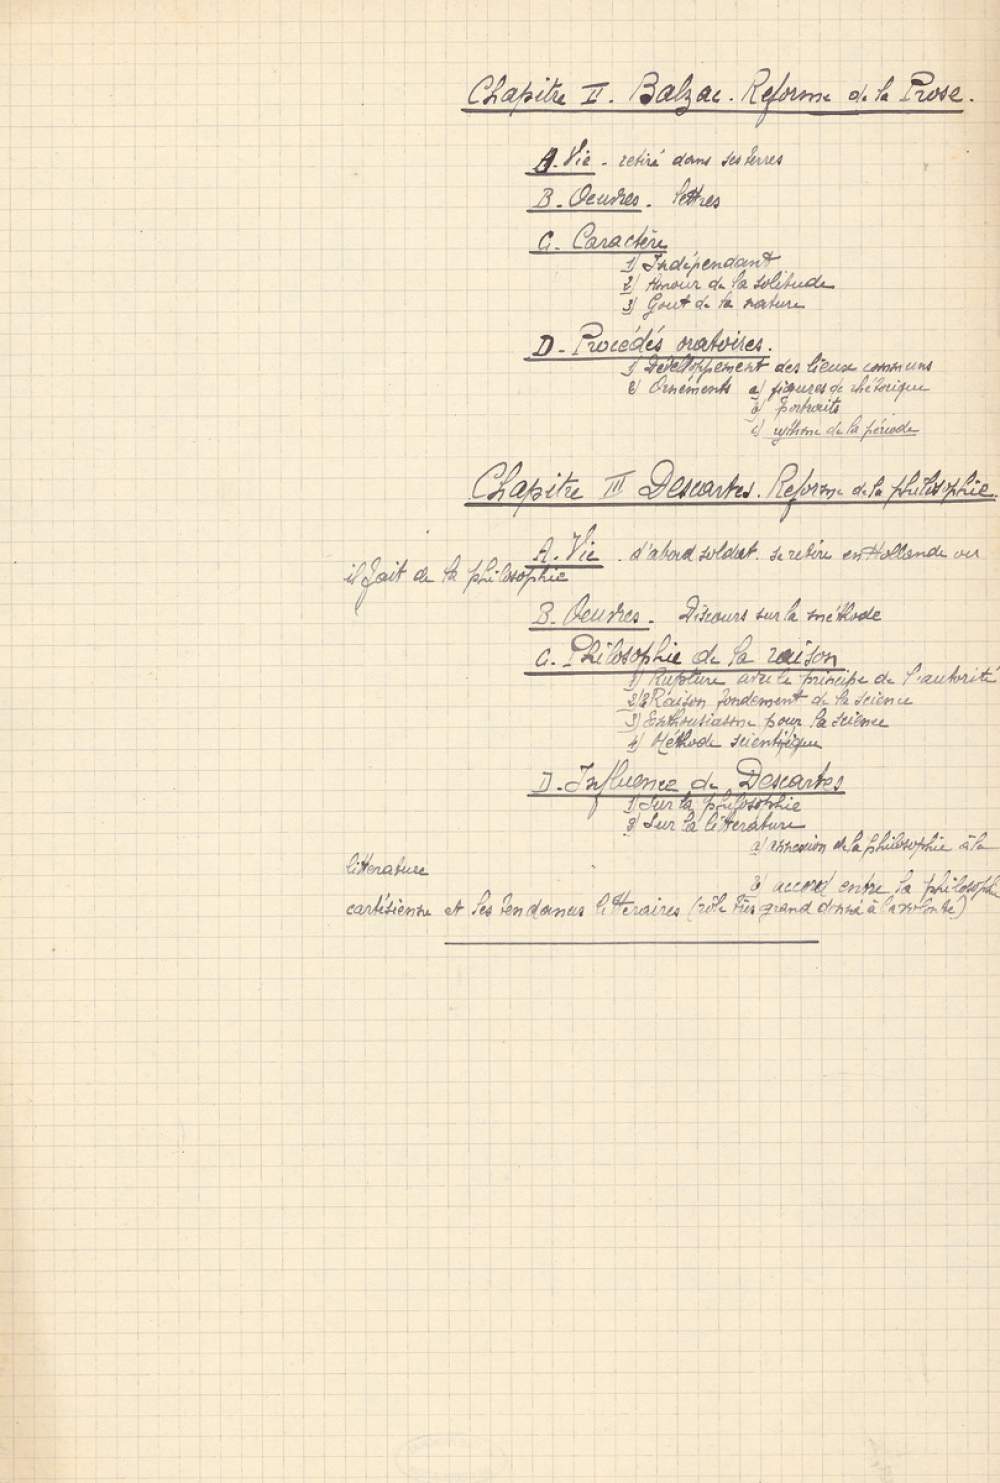 Chapitre II. Balzac. Reforme de la Prose.
A. Vie - retiré dans ses terres
B. Oeuvres. lettres
C. Caractère
1) Indépendant
2) Amour de la solitude
3) Gout de la nature
D. Procédés oratoires.
1) Développement des lieux communs
2) Ornements a) figures de rhétorique
b) portraits
c) rythme de la période
Chapitre III Descartes. Reforme de la philosophie.
A. Vie. d'abord soldat. se retire en Hollande ou
il fait de la philosophie
B. Oeuvres. Discours sur la méthode
C. Philosophie de la raison
1) Rupture avec le principe de l'autorité
2) Raison fondement de la science
3) Enthousiasme pour la science
4) Méthode scientifique
D. Influence de Descartes
1) Sur la philosophie
2) Sur la litterature
a) annexion de la philosophie à la
litterature
b) accord entre la philosophie
cartésienne et les tendances litteraires (rôle très grand donné à la volonté)